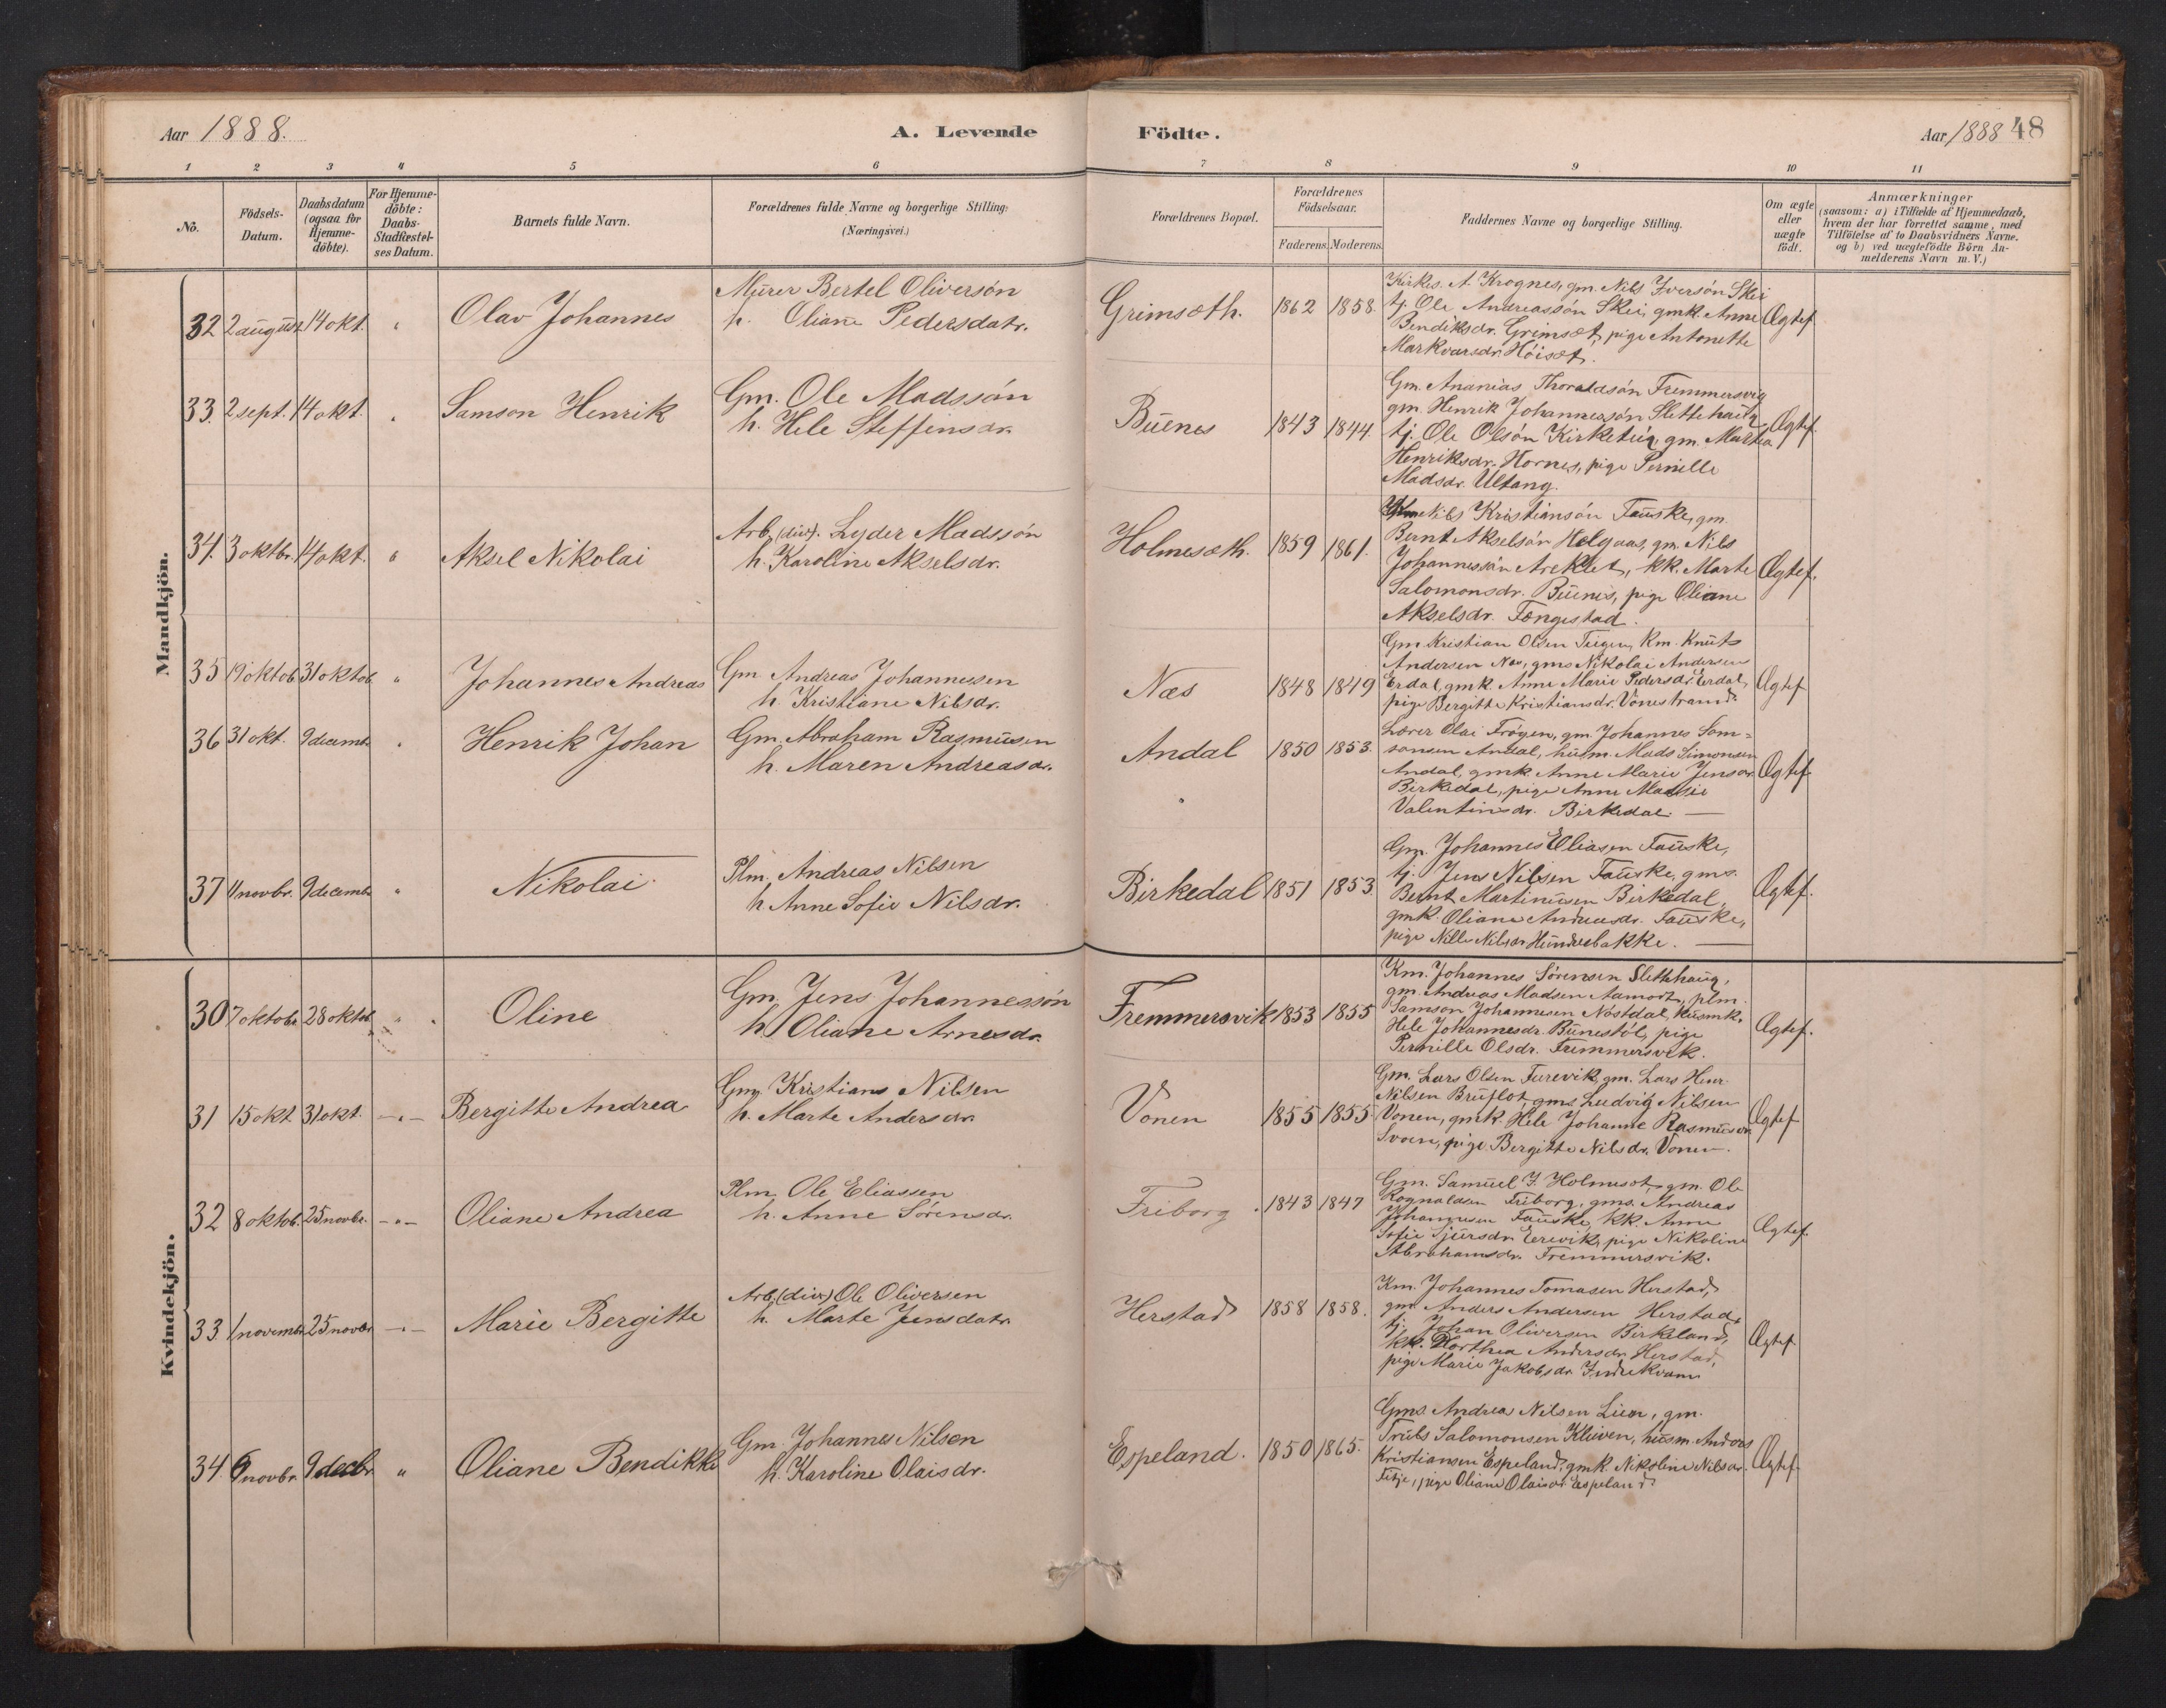 Aar 1888.
A. Levende
Födte.
Aar 1888 48
1 2 3 4 5 6 7 8 9 10 11
No.
Födsels-
Datum.
Daabsdatum
(ogsaa for
Hjemme-
döbte).
For Hjemme-
döbte:
Daabs-
Stadfæstel-
ses Datum.
Barnets fulde Navn.
Forældrenes fulde Navne og borgerlige Stilling:
(Næringsvei.)
Forældrenes Bopæl.
Forældrenes
Födselsaar.
Faderens. Moderens.
Faddernes Navne og borgerlige Stilling.
Om ægte
eller
uægte
födt.
Anmærkninger
(saasom: a) i Tilfælde af Hjemmedaab,
hvem der har forrettet samme, med
Tilföielse af to Daabsvidners Navne.
og b) ved uægtefödte Börn An-
melderens Navn m. V.)
Mandkjön.
32 2 august 14 okt. " Olav Johannes
Murer Bertel Oliversön
h. Oliane Pedersdatr.
Grimsæth. 1862 1858.
Kirkes. A. Krognes, gm. Nils Iversön Skei
tj. Ole Andreassön Skei, gmk. Anne
Bendiksdr. Grimsæt, pige Antonette
Markvarsdr. Höisæt.
Ægtef.
33. 2 sept. 14 okt. " Samson Henrik
Gm. Ole Madssön
h. Hele Steffensdr.
Buenes 1843 1844.
Gm. Ananias Thoraldsön Fremmersvig
gm. Henrik Johannessön Slettehaug
tj. Ole Olsön Kirketeig, gm. Martha
Henriksdr. Hornes, pige Pernille
Madsdr. Ultang.
Ægtef.
34. 3 oktbr. 14 okt. " Aksel Nikolai
Arb. (div). Lyder Madssön
h. Karoline Akselsdr.
Holmesæth. 1859 1861.
Gm Nils Kristiansön Fauske, gm.
Bernt Akselsön Helgaas, gm. Nils
Johannessön Areklet, kk. Marte
Salomonsdr. Buenes, pige Oliane
Akselsdr. Fængestad.
Ægtef.
35 19 oktob. 31 oktob. " Johannes Andreas
Gm Andreas Johannessen
h. Kristiane Nilsdr.
Næs 1848 1849
Gm. Kristian Olsen Teigen, Km. Knut
Andersen Næs, gms Nikolai Andersen
Erdal, gmk. Anne Marie Pedersdr. Erdal,
pige Bergitte Kristiansdr. Vonestrand.
Ægtef
36 31 okt. 9 decembr. " Henrik Johan
Gm. Abraham Rasmusen
h. Maren Andreasdr.
Andal 1850 1853.
Lærer Olai Frögen, gm. Johannes Sam=
sonsen Andal, husm. Mads Simonsen
Andal, gmk. Anne Marie Jensdr.
Birkedal, pige Anne Marie
Valentinsdr. Birkedal. —
Ægtef.
37 11 novbr. 9 decembr " Nikolai
Plm. Andreas Nilsen
h. Anne Sofie Nilsdr.
Birkedal 1851 1853
Gm. Johannes Eliasen Fauske,
tj. Jens Nilsen Fauske, gms.
Bernt Martinusen Birkedal,
gmk. Oliane Andreasdr. Fauske,
pige Nille Nilsdr Hundvebakke. —
Ægtef.
Kvindekjön.
30 7 oktobr. 28 oktob. " Oline
Gm. Jens Johannessön
h. Oliane Arnesdr.
Fremmersvik 1853 1855
Km. Johannes Sörensen Slettehaug,
gm. Andreas Madsen Aamodt, plm.
Samson Johannesen Nöstdal, husmk.
Hele Johannesdr. Bunestöl, pige
Pernille Olsdr. Fremmersvik.
Ægtef.
31 15 okt. 31 okt. —"— Bergitte Andrea
Gm. Kristians Nilsen
h. Marte Andersdr.
Vonen 1855 1855
Gm. Lars Olsen Furevik, gm. Lars Henr.
Nilsen Bruflot, gms Ludvig Nilsen
Vonen, gmk. Hele Johanne Rasmusdr.
Svoen, pige Bergitte Nilsdr. Vonen.
Ægtef
32 8 oktob. 25 novbr. —"— Oliane Andrea
Plm. Ole Eliassen
h. Anne Sörensdr.
Friborg 1843 1847
Gm. Samuel J. Holmesæt, gm. Ole
Rognaldsen Friborg, gms. Andreas
Johannesen Fauske, kk. Anne
Sofie Sjursdr. Eerevik, pige Nikoline
Abrahamsdr. Fremmersvik.
Ægtef.
33 1 novembr. 25 novbr —"— Marie Bergitte
Arb. (div) Ole Oliversen
h. Marte Jensdatr.
Herstad 1858 1858.
Km. Johannes Tomasen Herstad,
gm Anders Andersen Herstad,
tj. Johan Oliversen Birkeland,
kk. Dorthea Andersdr. Herstad,
pige Marie Jakobsdr. Indrekvam
Ægtef.
34. 6 novbr. 9 decbr " Oliane Bendikke
Gm. Johannes Nilsen
h. Karoline Olaisdr.
Espeland. 1850 1865.
Gms. Andrea Nilsen Lien, gm.
Truls Salomonsen Kleiven, husm. Anders
Kristiansen Espeland, gmk. Nikoline Nilsdr.
Fitje, pige Oliane Olaisdr. Espeland.
Ægtef.